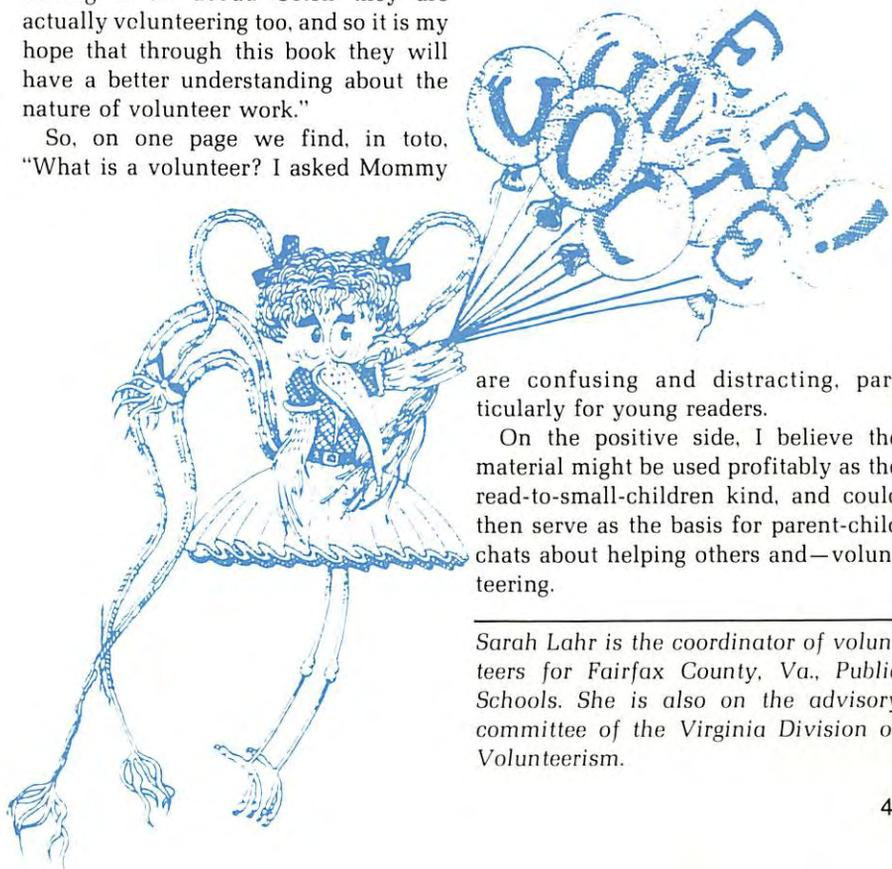 actually volunteering too, and so it is my
hope that through this book they will
have a better understanding about the
nature of volunteer work."
So, on one page we find, in toto,
"What is a volunteer? I asked Mommy
VOLUNTEER!
are confusing and distracting, par
ticularly for young readers.
On the positive side, I believe the
material might be used profitably as the
read-to-small-children kind, and could
then serve as the basis for parent-child
chats about helping others and—volun
teering.
Sarah Lahr is the coordinator of volun
teers for Fairfax County, Va., Public
Schools. She is also on the advisory
committee of the Virginia Division o
Volunteerism.
4